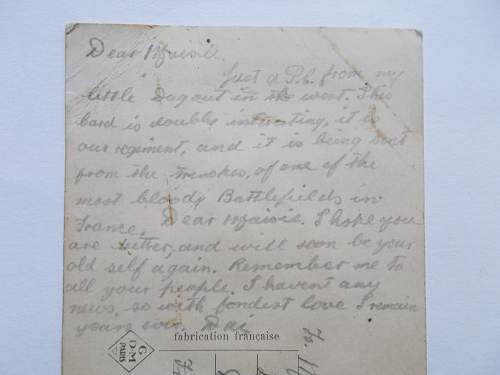 Dear Maisie
Just a P.C. from my
little Dugout in the west. This
Card is doubly interesting, it is
our regiment, and it is being sent
from the trenches, of one of the
most bloody Battlefields in
France. Dear Maisie. I hope you
are better, and will soon be your
old self again. Remember me to
all your people. I havent any
news, so with fondest love I remain
yours ever. Dai
fabrication française
G
D·M
PARIS